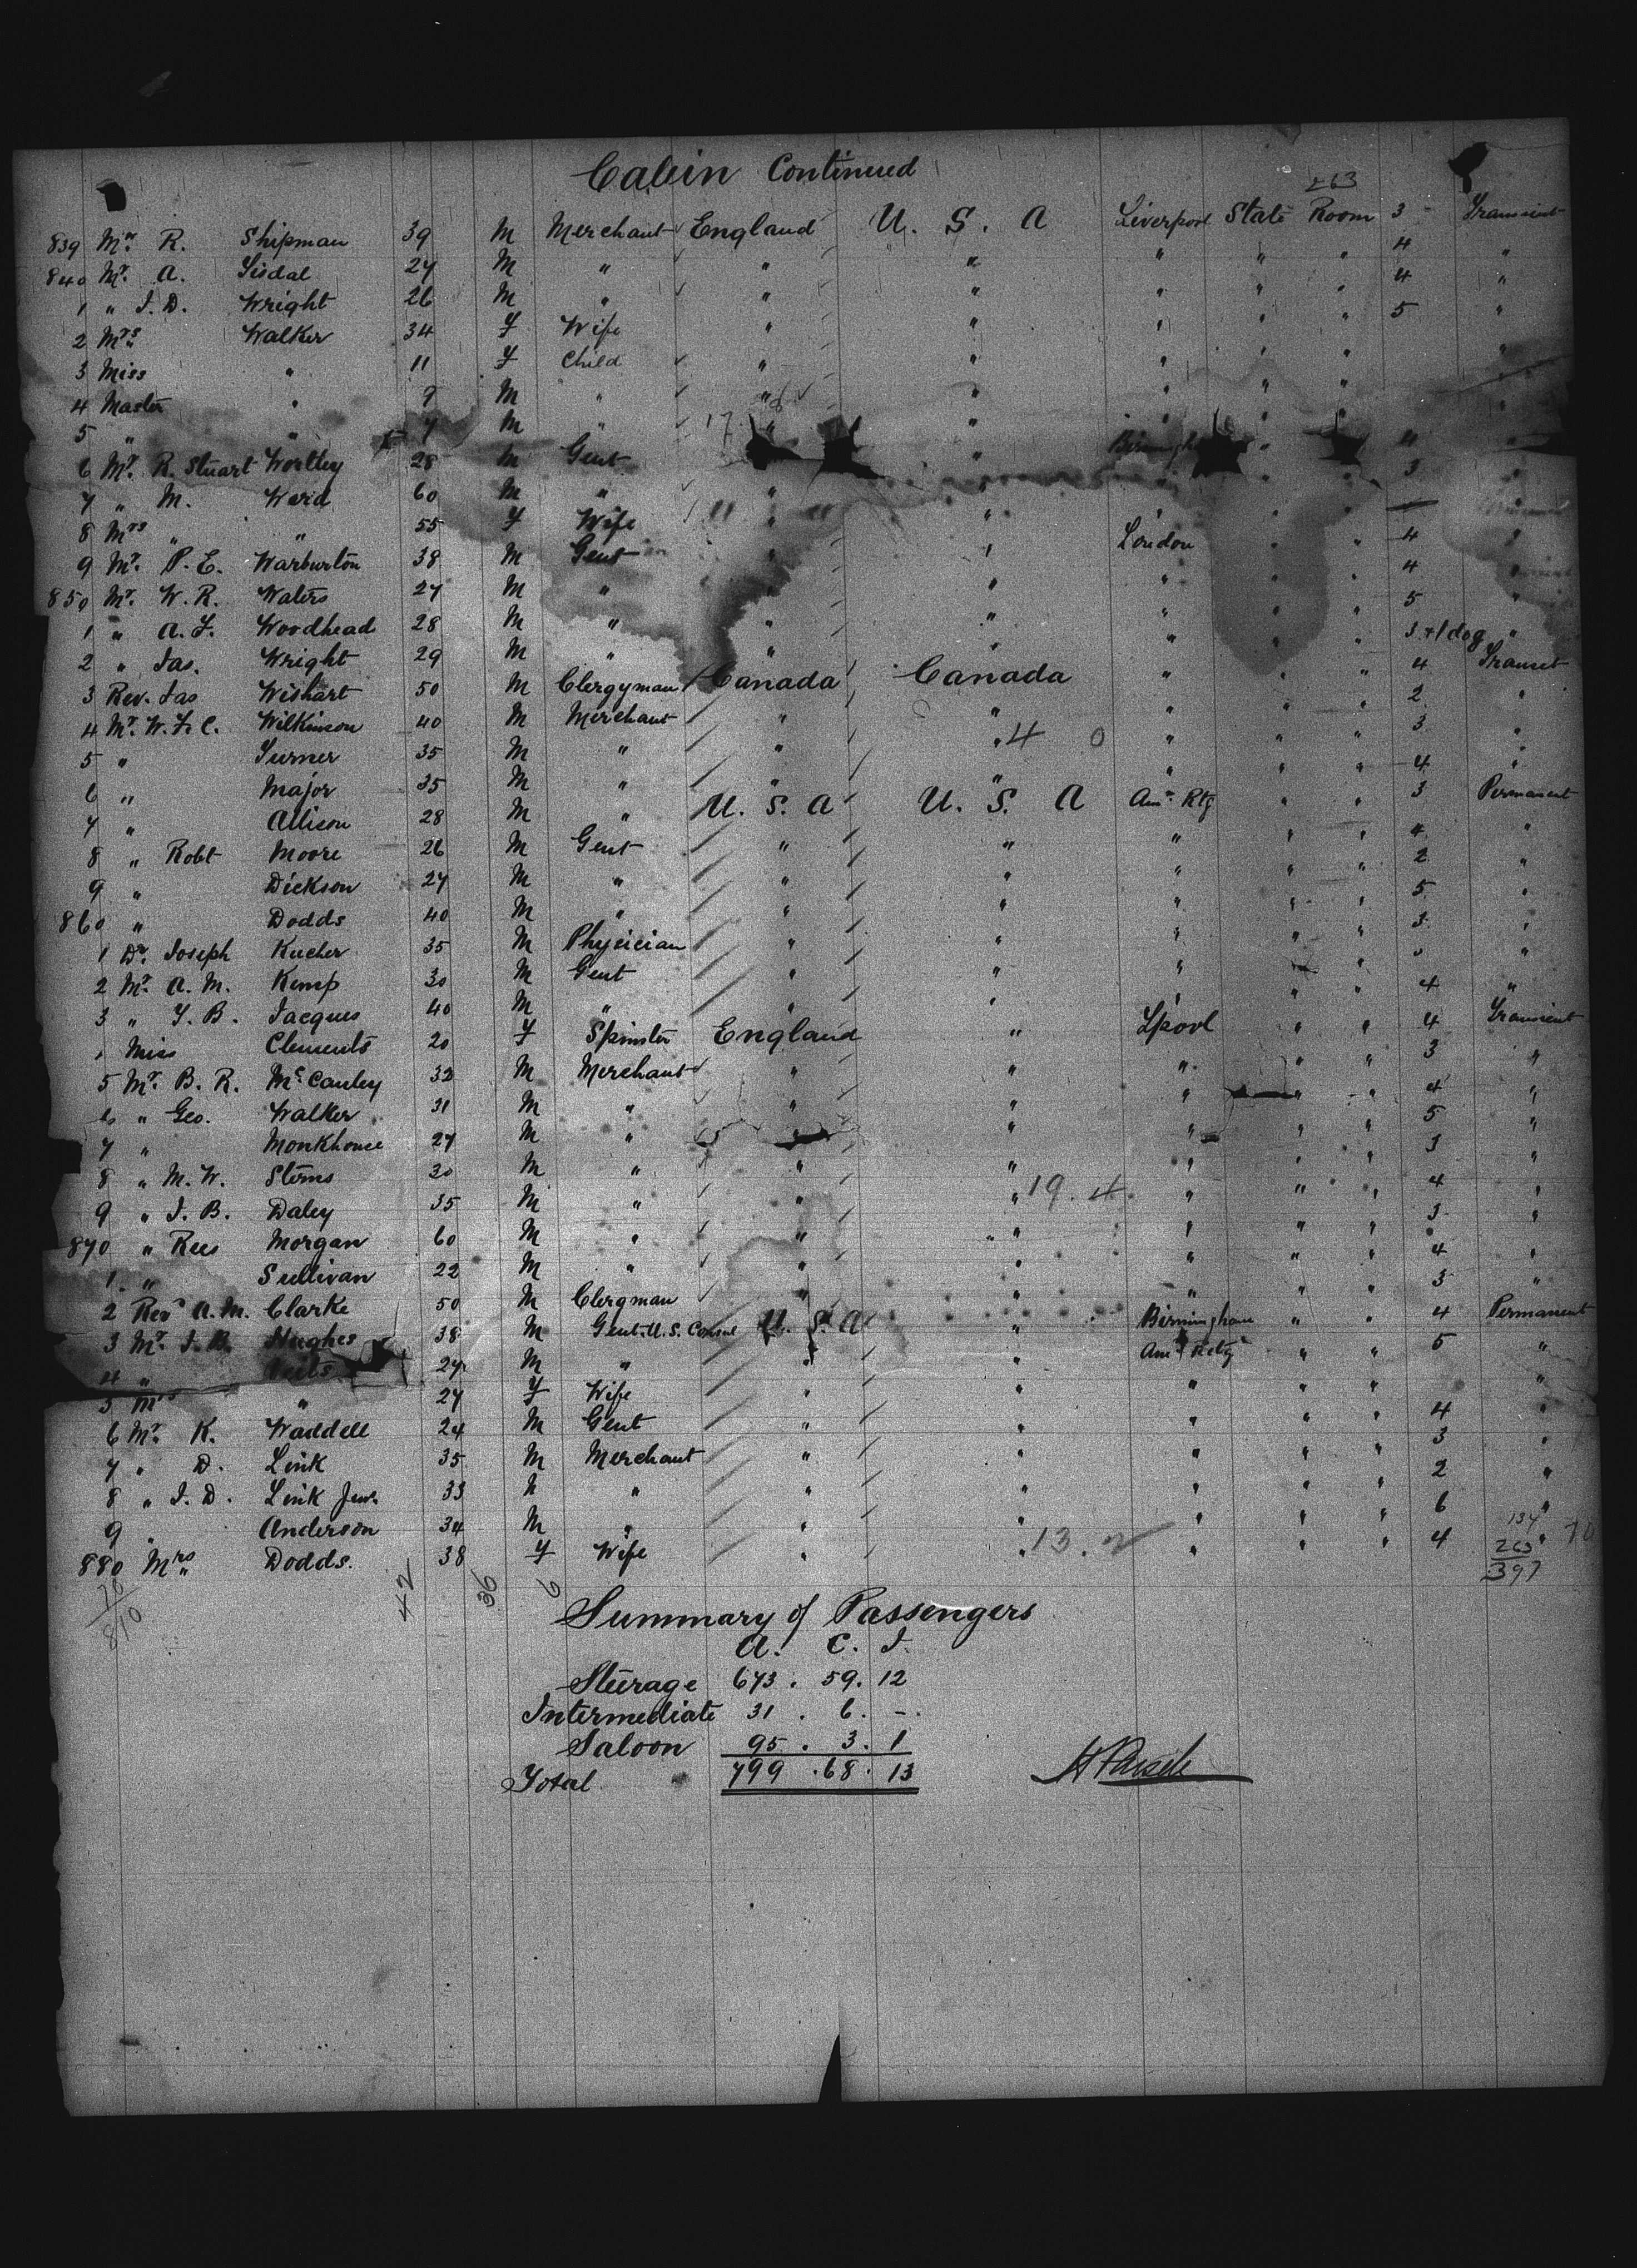 Cabin Continued
263
839 Mr. R. Shipman 39 M Merchant England U. S. A Liverpool State Room 3 Transient
840 Mr. A. Sisdal 27 M " " " " " " 4 "
1 " J. D. Wright 26 M " " " " " " 4 "
2 Mrs. Walker 34 F Wife " " " " " 5 "
3 Miss " 11 F Child " " " " " "
4 Master " 9 M " " " " " "
5 " " 7 M " " "
6 Mr. R. Stuart Wortley 28 M Gent " " 4 "
7 " M. Ward 60 M " " " 3 "
8 Mrs " " 55 F Wife " "
9 Mr. P. E. Warburton 38 M Gent " " London " " 4 "
850 Mr. W. R. Waters 27 M " " " " " 4
1 " A. F. Woodhead 28 M " " " " " " 5 "
2 " Jas. Wright 29 M " " " " " " 3 + 1 dog "
3 Rev. Jas Wishart 50 M Clergyman Canada Canada " " " 4 Transit
4 Mr. W. F. C. Wilkinson 40 M Merchant " " " 2 "
5 " Turner 35 M " " " 4 0 " " " 3 "
6 " Major 35 M " " " " " " 4 "
7 " Allison 28 M " U. S. A U. S. A Amn. Rtg " " 3 Permanent
8 " Robt Moore 26 M Gent " " " " " 4 "
9 " Dickson 27 M " " " " " " 2 "
860 " Dodds 40 M " " " " " " 5 "
1 Dr. Joseph Kucher 35 M Physician " " " " " 3 "
2 Mr. A. M. Kemp 30 M Gent " " " " "
3 " Y. B. Jacques 40 M " " " " " " 4 "
Miss Clements 20 F Spinster England " Lpool " " 4 Transient
5 Mr. B. R. McCauley 32 M Merchant " " " " " 3 "
6 " Geo. Walker 31 M " " " " " " 4 "
7 " Monkhouse 27 M " " " " " " 5 "
8 " M. W. Storms 30 M " " " " " " 3 "
9 " J. B. Daley 35 M " " " 19. 4. " " " 4 "
870 " Rees Morgan 60 M " " " " " " 3 "
1 " Sullivan 22 M " " " " " " 4 "
2 Rev A. M. Clarke 50 M Clergman " " " " " 3 "
3 Mr. J. B. Hughes 38 M Gent. U. S. Consul U. S. A " Birmingham " " 4 Permanent
4 " 27 M " " " Amn. Retg " " 5 "
5 Mrs " 27 F Wife " " " " " "
6 Mr. K. Waddell 24 M Gent " " " " " 4 "
7 " D. Link 35 M Merchant " " " " " 3 "
8 " J. D. Link Jun. 33 M " " " " " " 2 "
9 " Anderson 34 M " " " " " " 6 "
880 Mrs " Dodds. 38 F Wife " " 13. 2 " " " 4 "
134
263
397
70
70
810
42 36 6
Summary of Passengers
A. C. I.
Steerage 673 . 59. 12
Intermediate 31 . 6. -.
Saloon 95 . 3. 1
Total 799 . 68. 13